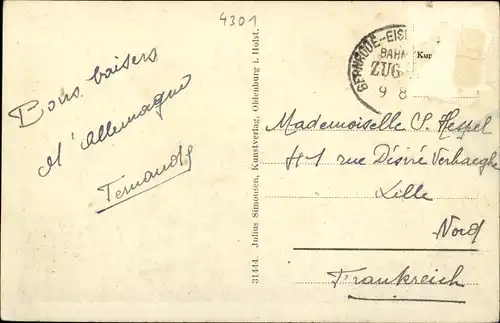 4301
GERNRODE-EIS
BAHN
ZUG
9 8
Kur
Bons baisers
d'Allemagne
Fernande
31444. Julius Simonsen, Kunstverlag, Oldenburg i. Holst.
Mademoiselle S. Hespel
41 rue Désiré Verhaeghe
Lille
Nord
Frankreich